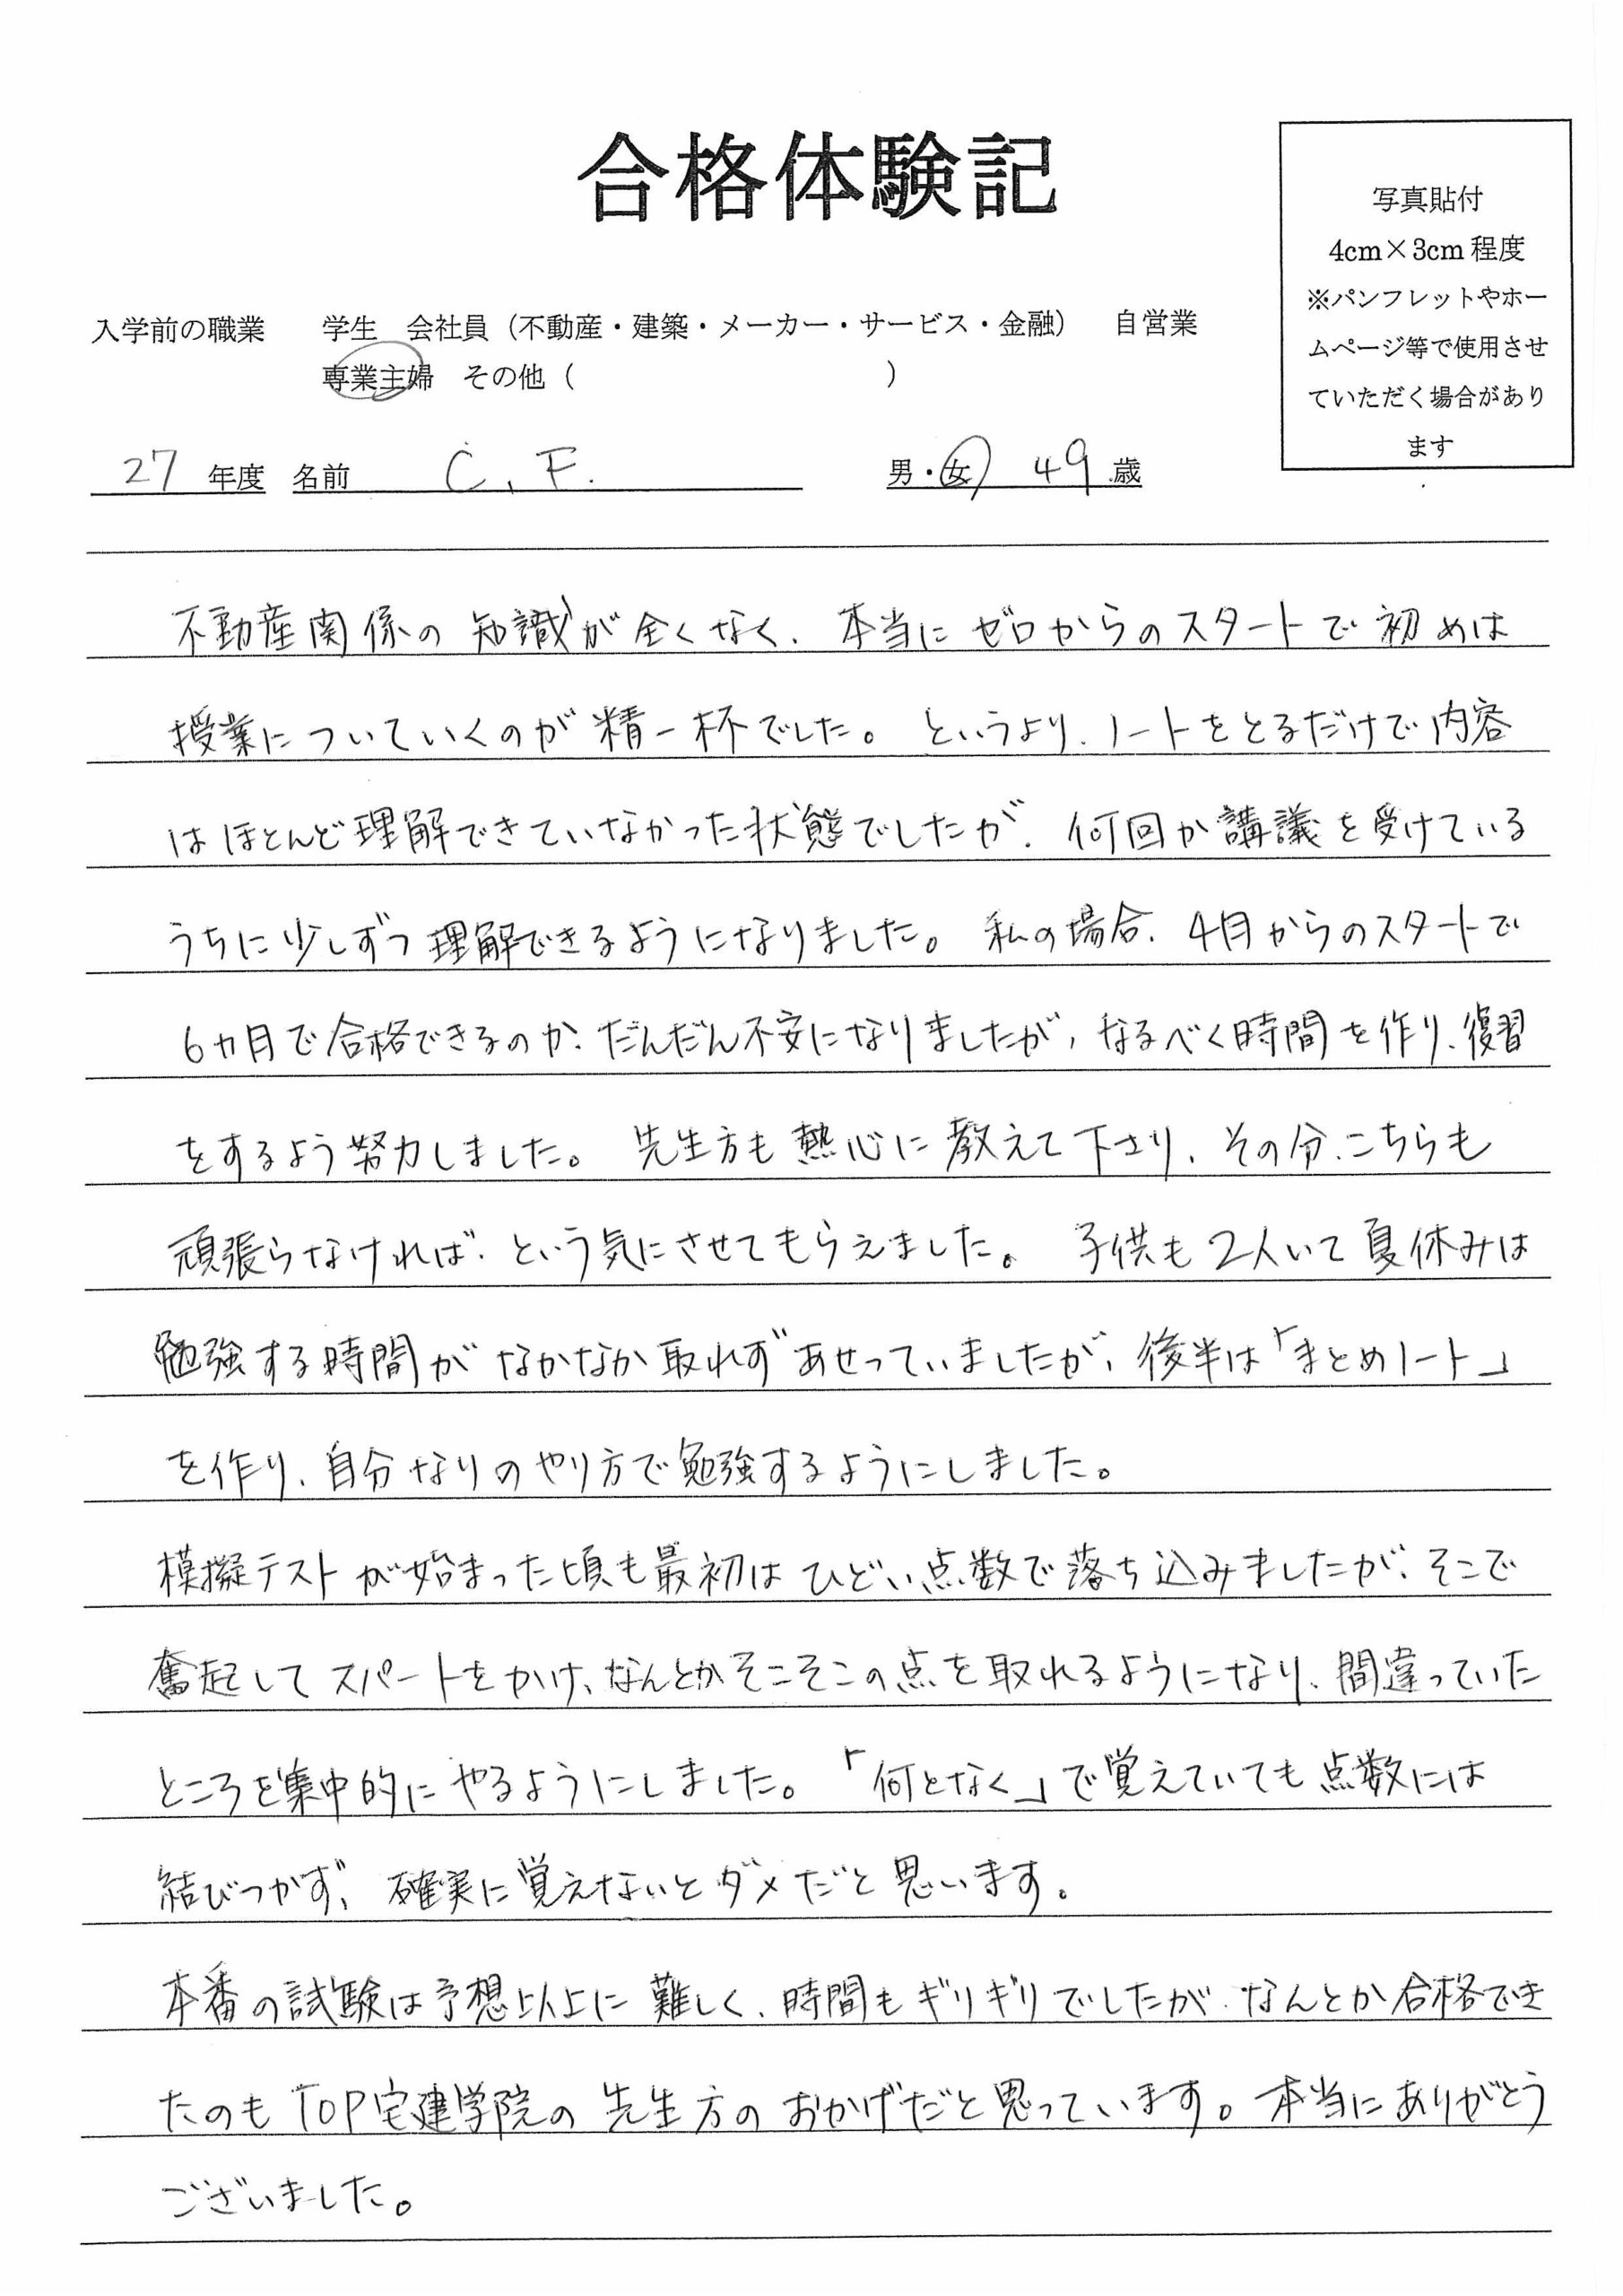 合格体験記
写真貼付
4cm×3cm程度
※パンフレットやホー
ムページ等で使用させ
ていただく場合があり
ます
入学前の職業 学生 会社員（不動産・建築・メーカー・サービス・金融） 自営業
専業主婦 その他（ ）
27年度 名前 C.F. 男・女 49歳
不動産関係の知識が全くなく、本当にゼロからのスタートで初めは
授業についていくのが精一杯でした。というより、ノートをとるだけで内容
はほとんど理解できていなかった状態でしたが、何回か講義を受けている
うちに少しずつ理解できるようになりました。私の場合、4月からのスタートで
6ヵ月で合格できるのか、だんだん不安になりましたが、なるべく時間を作り、復習
をするよう努力しました。先生方も熱心に教えて下さり、その分、こちらも
頑張らなければ、という気にさせてもらえました。子供も2人いて夏休みは
勉強する時間がなかなか取れずあせっていましたが、後半は「まとめノート」
を作り、自分なりのやり方で勉強するようにしました。
模擬テストが始まった頃も最初はひどい点数で落ち込みましたが、そこで
奮起してスパートをかけ、なんとかそこそこの点を取れるようになり、間違っていた
ところを集中的にやるようにしました。「何となく」で覚えていても点数には
結びつかず、確実に覚えないとダメだと思います。
本番の試験は予想以上に難しく、時間もギリギリでしたが、なんとか合格でき
たのもTOP宅建学院の先生方のおかげだと思っています。本当にありがとう
ございました。